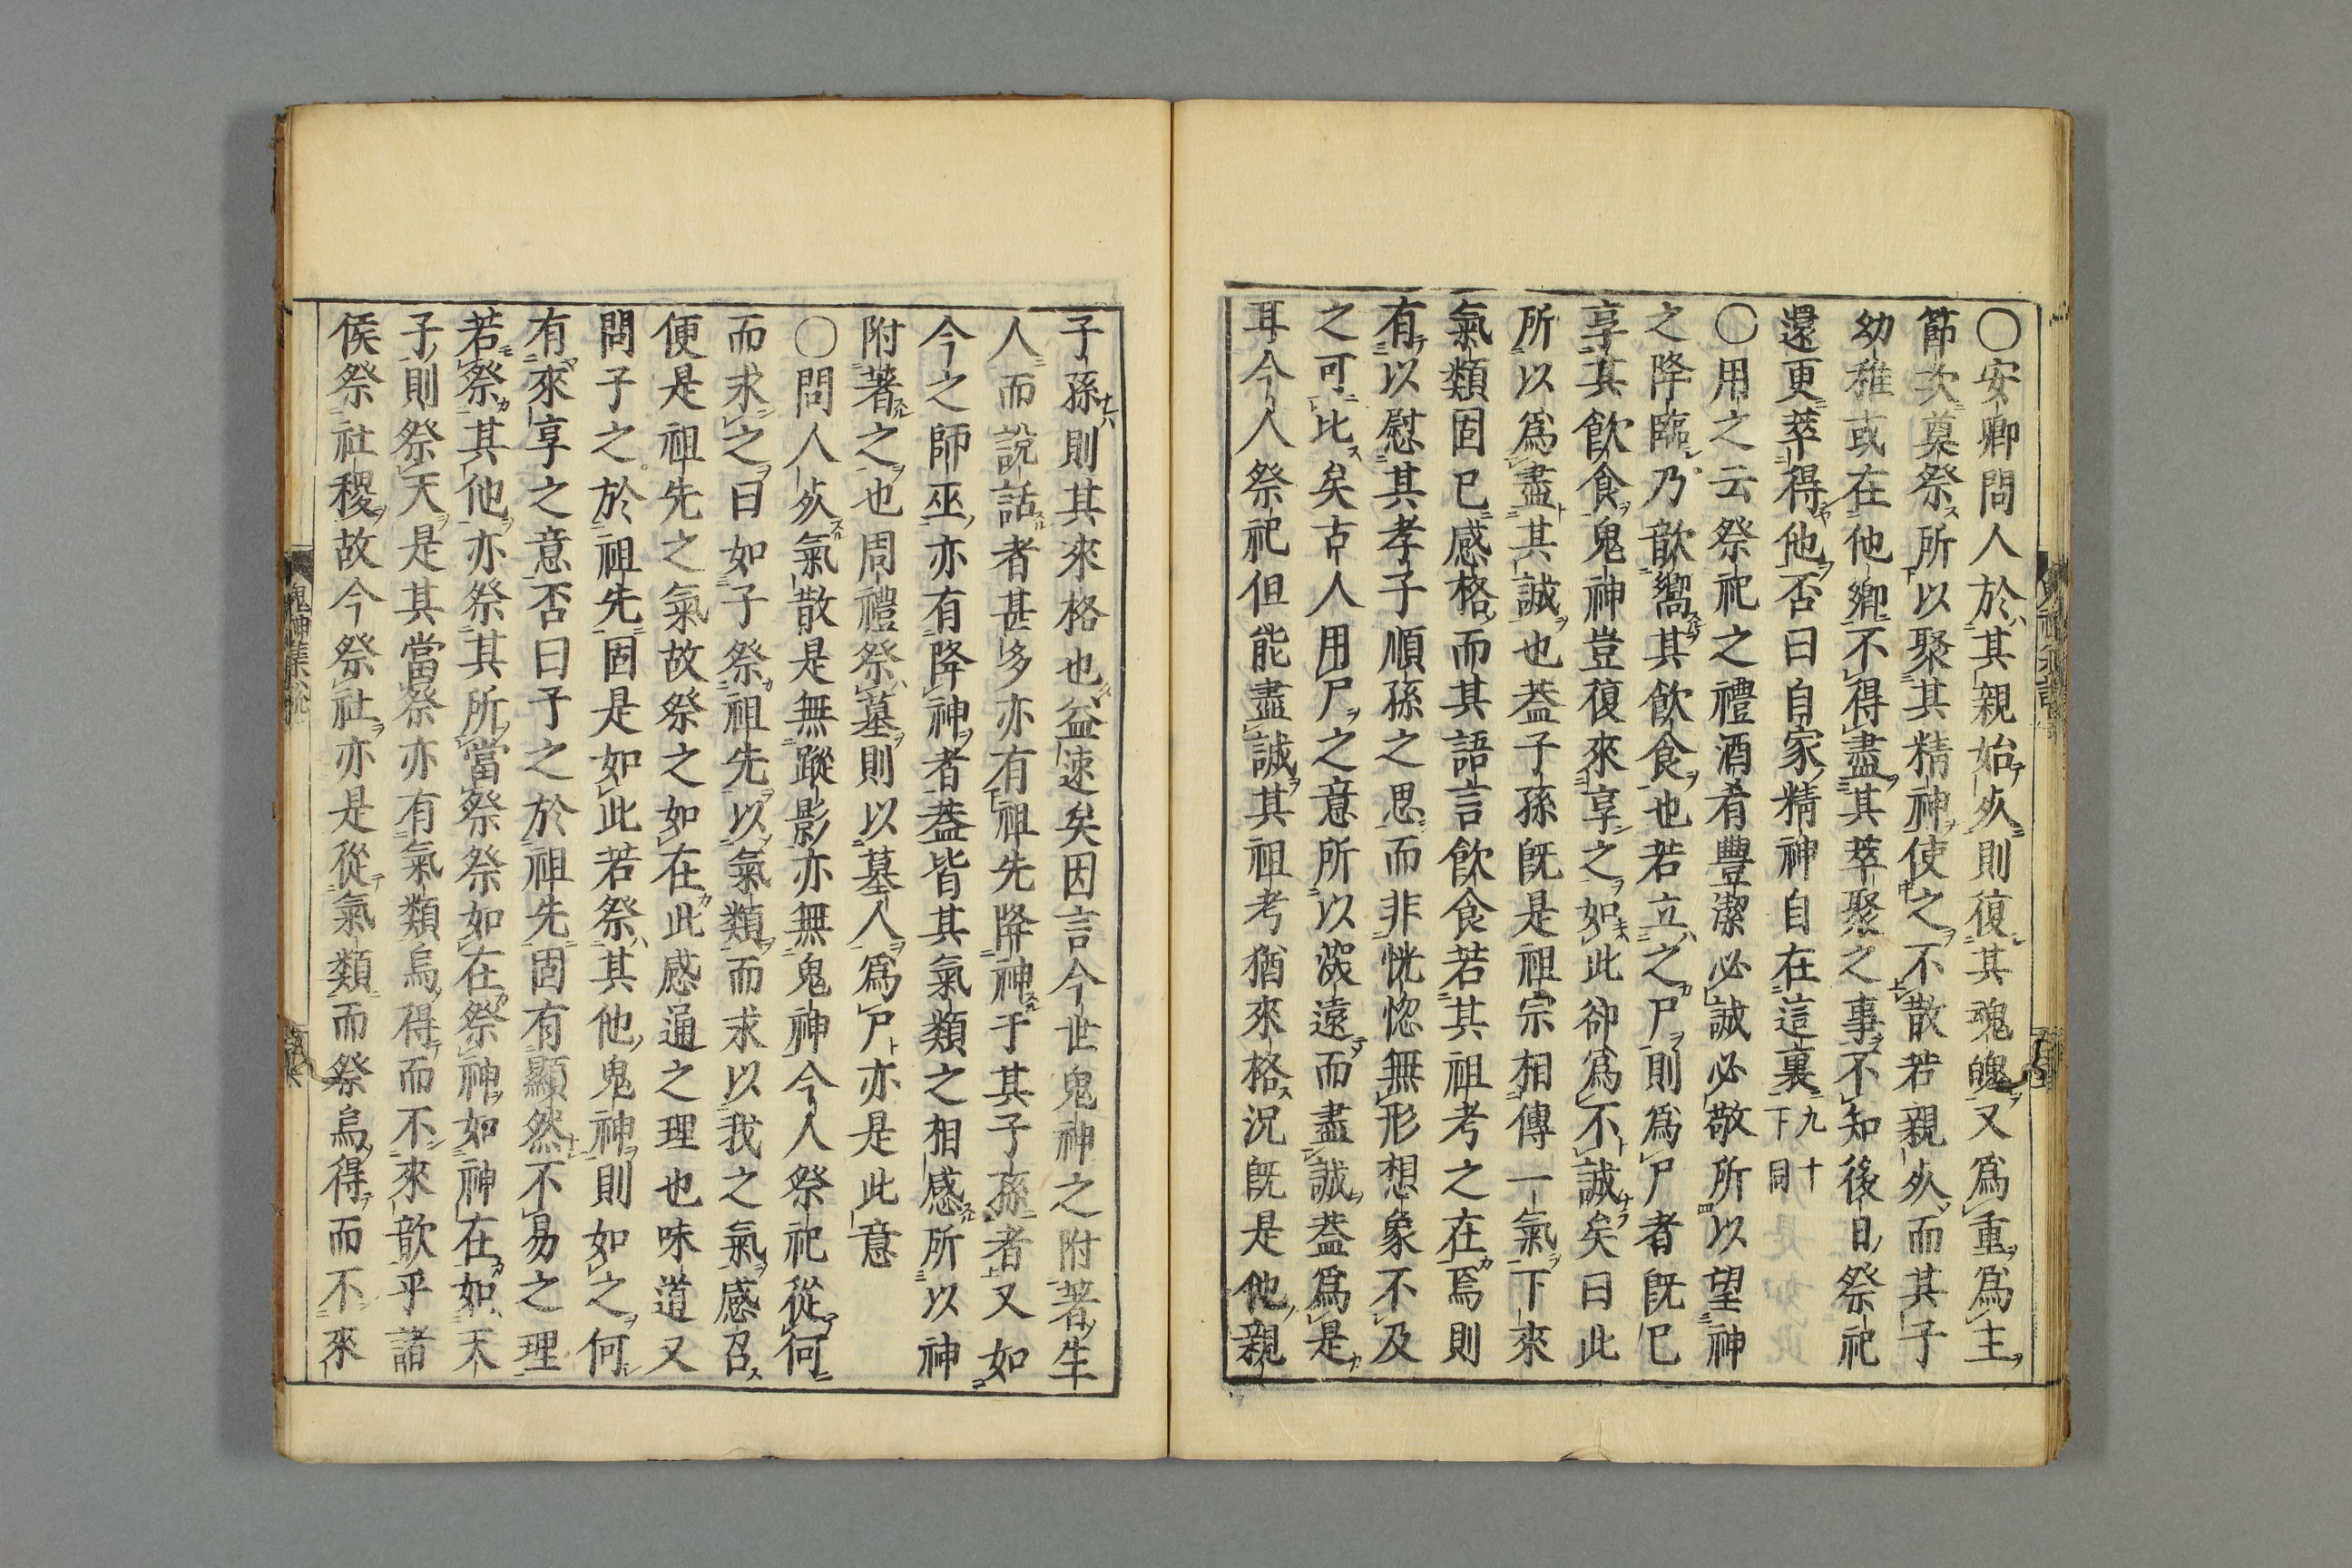 〇安卿問人於其親始死則復其魂魄又爲重爲主
節次奠祭所以聚其精神使之不散若親死而其子
幼稚或在他鄉不得盡其萃聚之事不知後日祭祀
還更萃得他否曰自家精神自在這裏九十下同
〇用之云祭祀之禮酒肴豐潔必誠必敬所以望神
之降臨乃歆嚮其飮食也若立之尸則爲尸者旣已
享其飮食鬼神豈復來享之如此卻爲不誠矣曰此
所以爲盡其誠也葢子孫旣是祖宗相傳一氣下來
氣類固已感格而其語言飮食若其祖考之在焉則
有以慰其孝子順孫之思而非恍惚無形想象不及
之可比矣古人用尸之意所以深遠而盡誠葢爲是
耳今人祭祀但能盡誠其祖考猶來格況旣是他親
子孫則其來格也益速矣因言今世鬼神之附著生
人而說話者甚多亦有祖先降神于其子孫者又如
今之師巫亦有降神者葢皆其氣類之相感所以神
附著之也周禮祭墓則以墓人爲尸亦是此意
〇問人死氣散是無蹤影亦無鬼神今人祭祀從何
而求之曰如子祭祖先以氣類而求以我之氣感召
便是祖先之氣故祭之如在此感通之理也味道又
問子之於祖先固是如此若祭其他鬼神則如之何
有來享之意否曰子之於祖先固有顯然不易之理
若祭其他亦祭其所當祭祭如在祭神如神在如天
子則祭天是其當祭亦有氣類烏得而不來歆乎諸
侯祭社稷故今祭社亦是從氣類而祭烏得而不來
鬼神集說